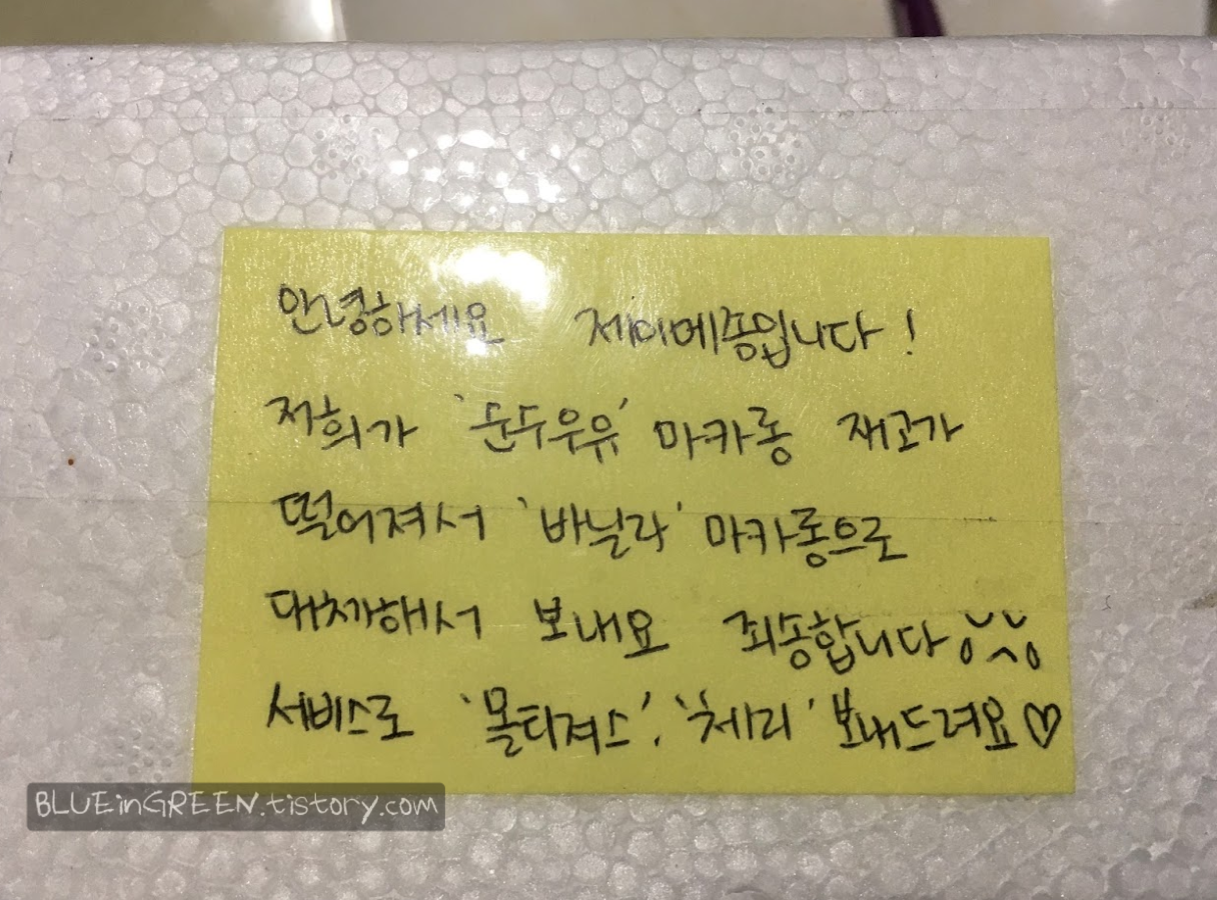 안녕하세요 제이메종입니다!
저희가 '순두우유' 마카롱 재고가
떨어져서 '바닐라' 마카롱으로
대체해서 보내요 죄송합니다
서비스로 '몰티져스', '체리' 보내드려요♡
BLUEinGREEN.tistory.com